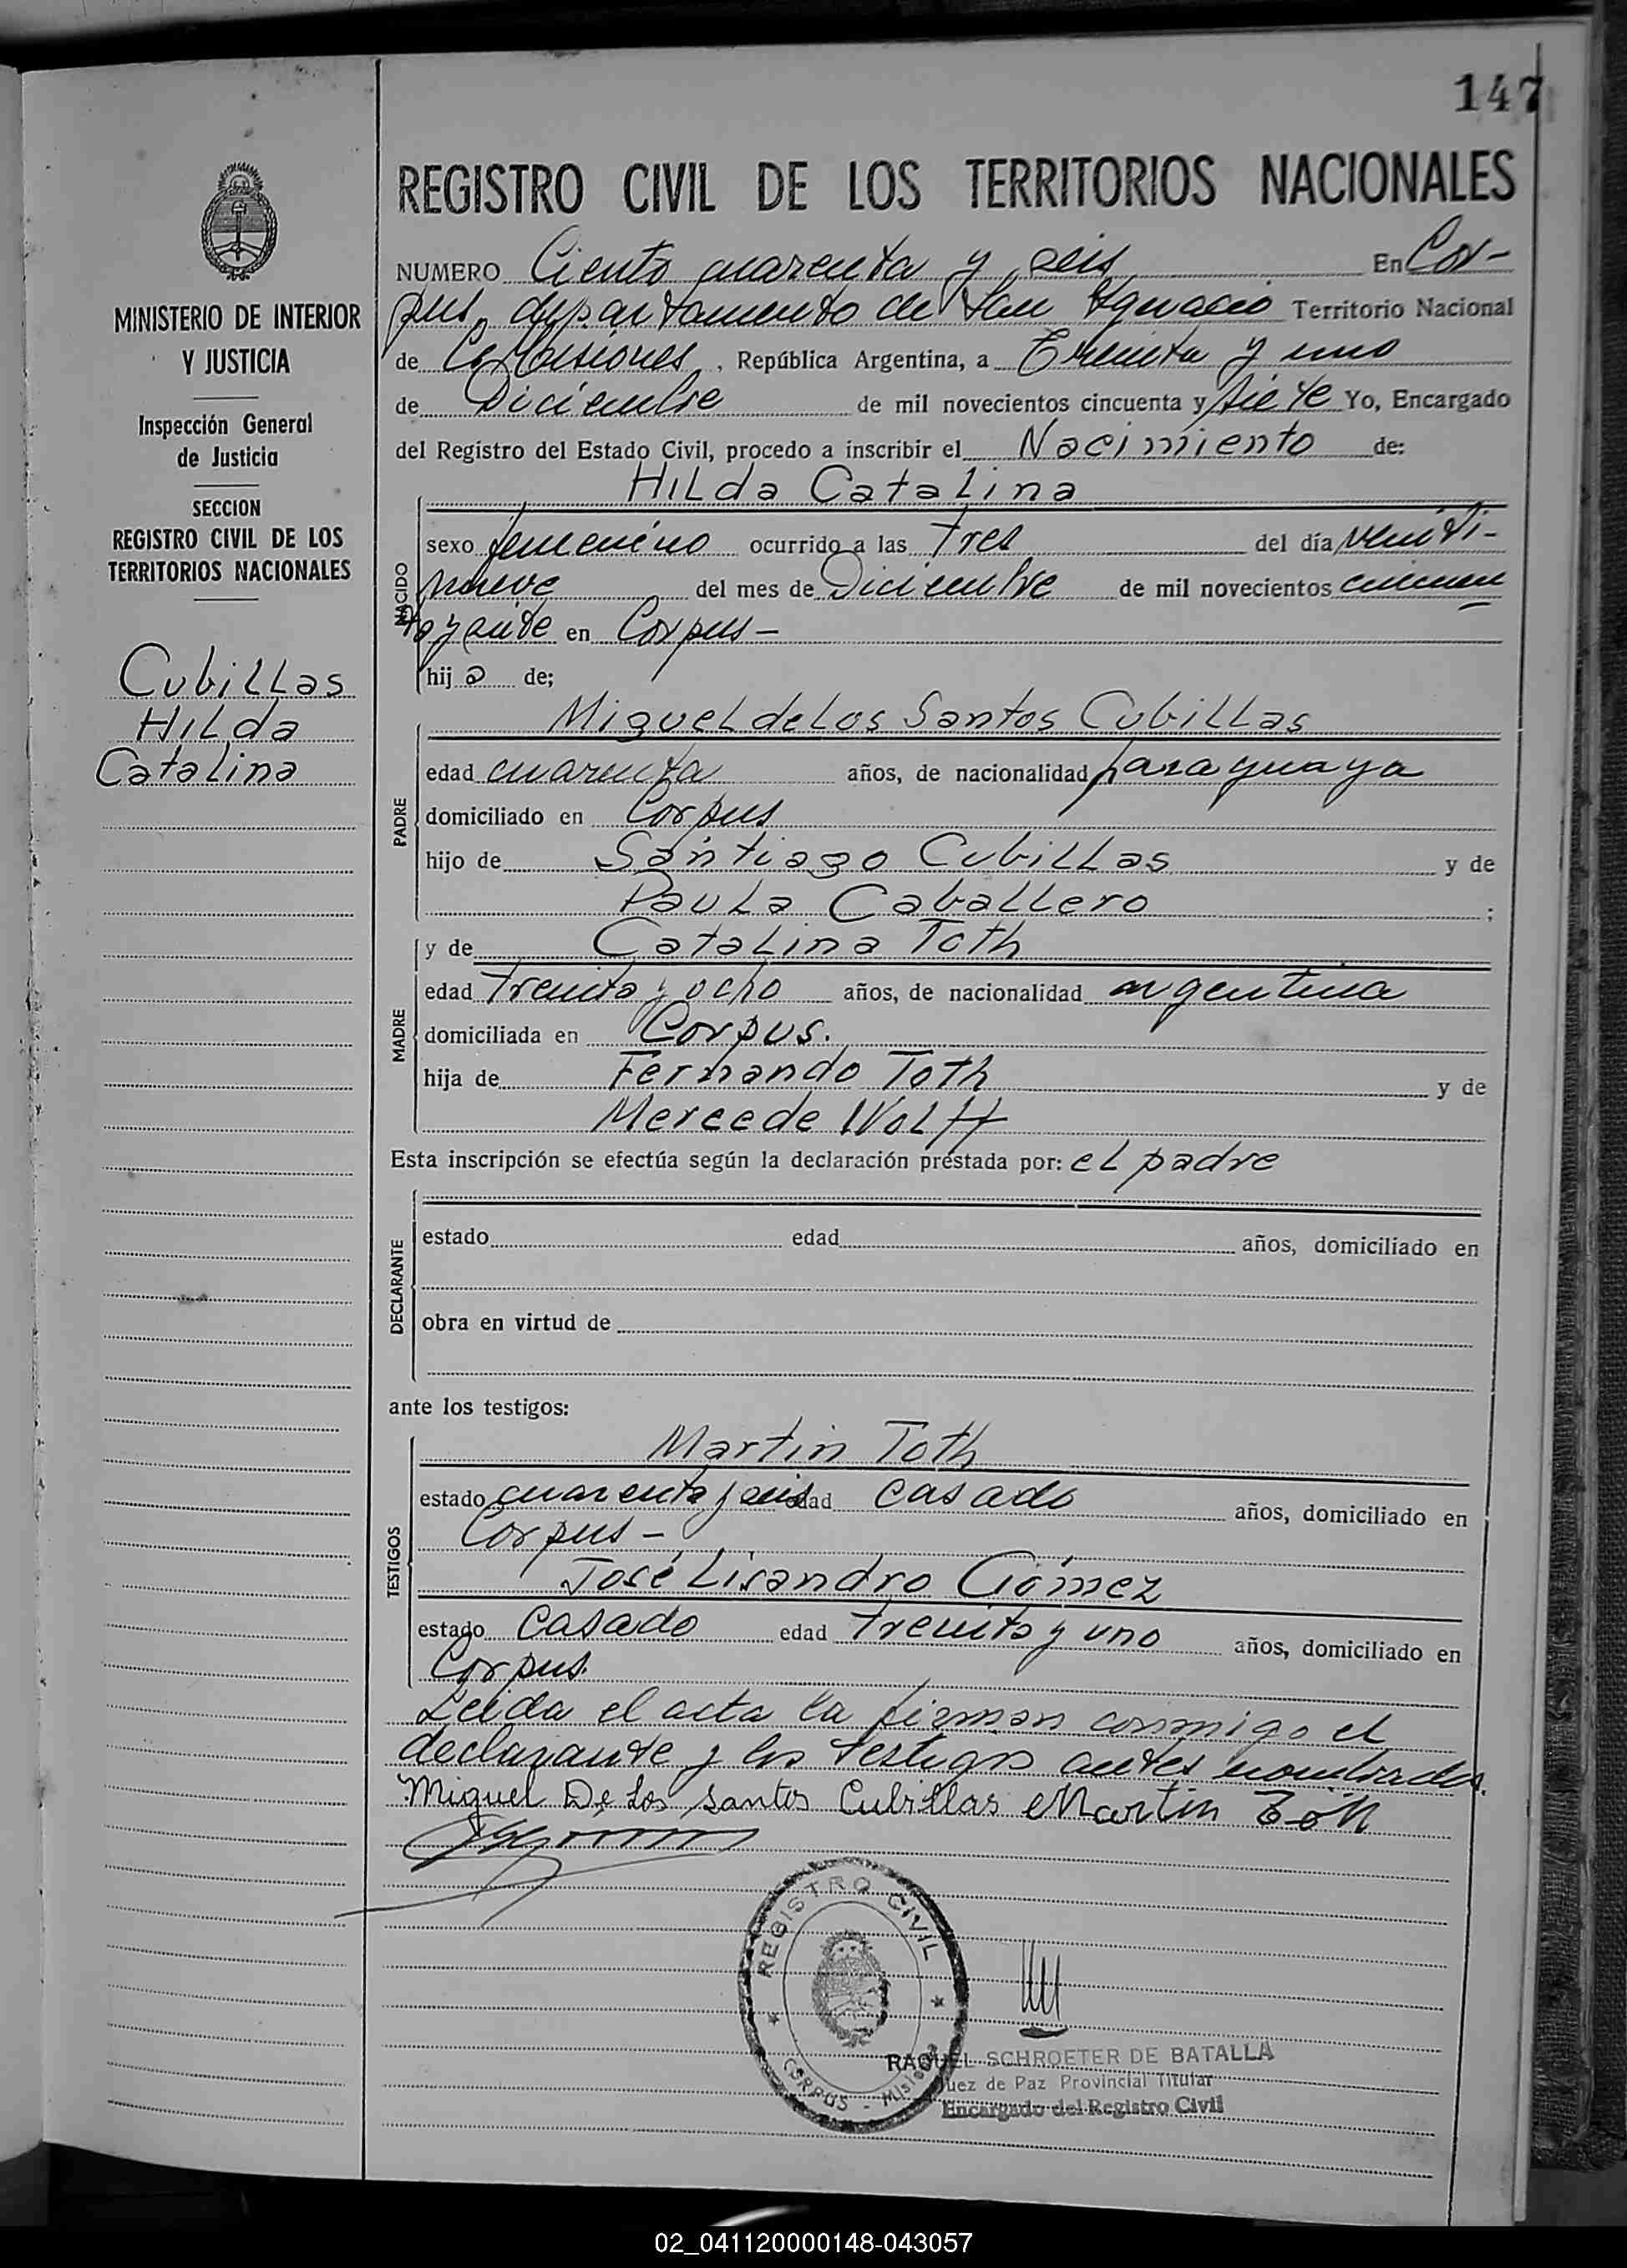 147
REGISTRO CIVIL DE LOS TERRITORIOS NACIONALES
MINISTERIO DE INTERIOR
Y JUSTICIA
Inspección General
de Justicia
SECCION
REGISTRO CIVIL DE LOS
TERRITORIOS NACIONALES
Cubillas
Hilda
Catalina
NUMERO Ciento cuarenta y seis En Cor-
pus, departamento de San Ignacio Territorio Nacional
de Misiones, República Argentina, a Treinta y uno
de Diciembre de mil novecientos cincuenta y siete Yo, Encargado
del Registro del Estado Civil, procedo a inscribir el Nacimiento de:
Hilda Catalina
NACIDO
sexo femenino ocurrido a las tres del día veinti-
nueve del mes de Diciembre de mil novecientos cincuen
en Corpus-
hija de;
Miguel de Los Santos Cubillas
PADRE
edad cuarenta años, de nacionalidad paraguaya
domiciliado en Corpus
hijo de Santiago Cubillas y de
Paula Caballero ;
y de Catalina Toth
MADRE
edad treinta y ocho años, de nacionalidad argentina
domiciliada en Corpus.
hija de Fernando Toth y de
Mercede Wolff
Esta inscripción se efectúa según la declaración prestada por: el padre
DECLARANTE
estado edad años, domiciliado en
obra en virtud de
ante los testigos:
Martin Toth
TESTIGOS
estado cuarenta y seis edad casado años, domiciliado en
Corpus-
José Lisandro Gómez
estado casado edad treinta y uno años, domiciliado en
Corpus.
Leida el acta la firman conmigo el
declarante y los testigos antes nombrados.
Miguel De Los Santos Cubillas Martin Tóth
REGISTRO CIVIL
CORPUS - Misiones
RAQUEL SCHROETER DE BATALLA
Juez de Paz Provincial Titular
Encargado del Registro Civil
02_041120000148-043057